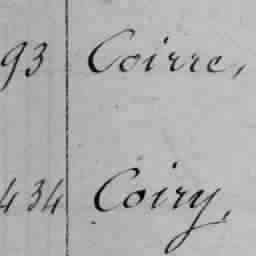 93 Coirre,
434 Coiry,